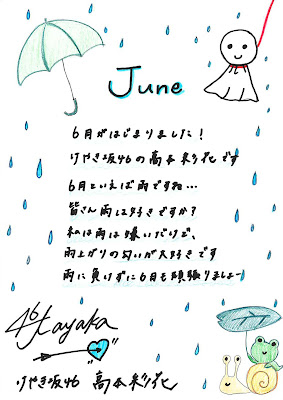 June
6月がはじまりました!
けやき坂46の高本彩花です
6月といえば雨ですね…
皆さん雨は好きですか?
私は雨は嫌いだけど、
雨上がりの匂いが大好きです
雨に負けずに6月も頑張りましょー!
けやき坂46 高本彩花